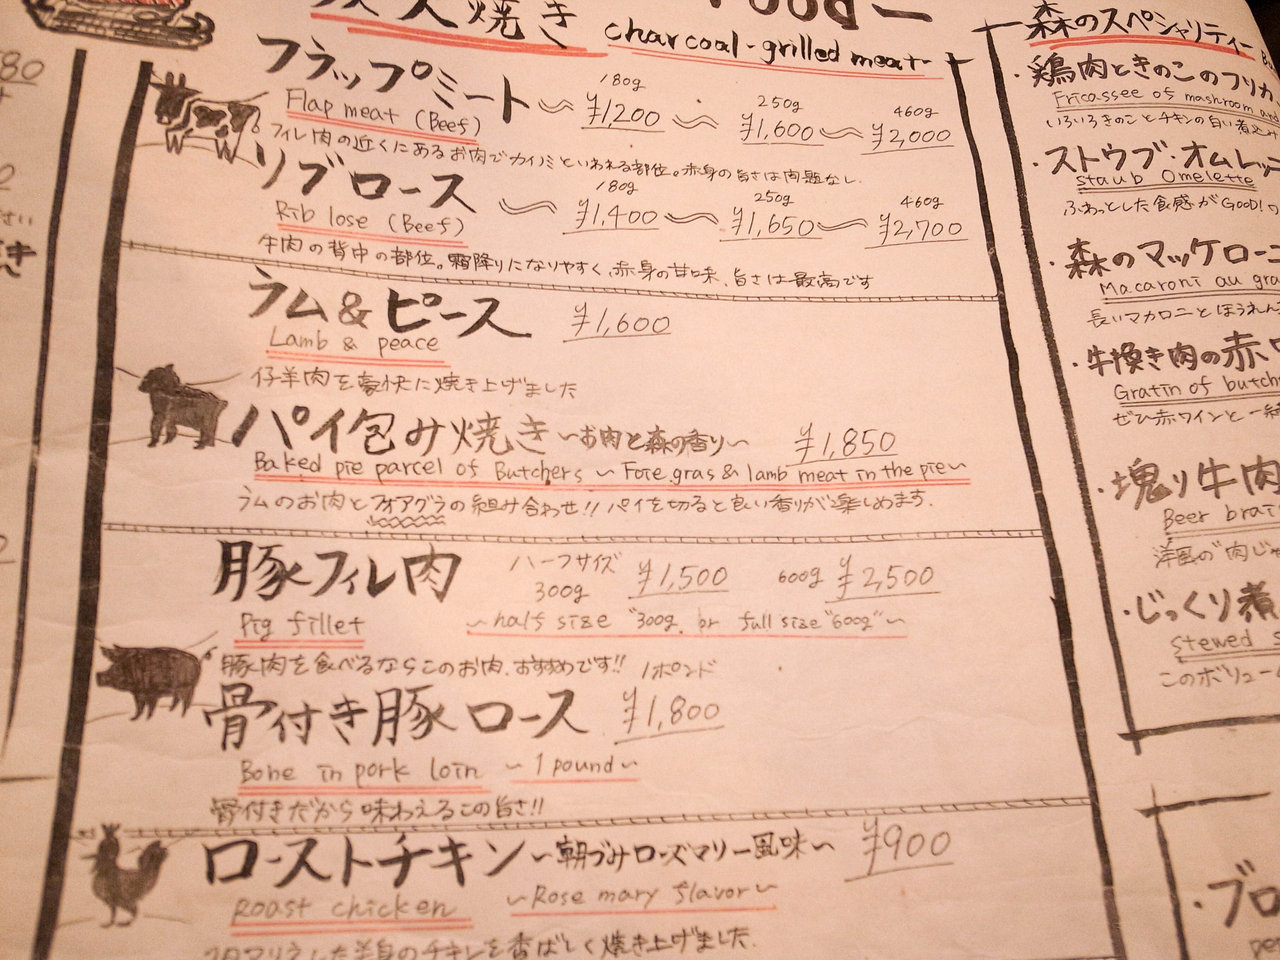 焼き
Food
charcoal-grilled meat
フラップミート
Flap meat (Beef)
180g ¥1,200 250g ¥1,600 460g ¥2,000
フィレ肉の近くにあるお肉でカイノミといわれる部位。赤身の旨さは問題なし.
リブロース
Rib lose (Beef)
180g ¥1,400 250g ¥1,650 460g ¥2,700
牛肉の背中の部位。霜降りになりやすく、赤身の甘味、旨さは最高です
ラム&ピース ¥1,600
Lamb & peace
仔羊肉を豪快に焼き上げました
パイ包み焼き ~お肉と森の香り~ ¥1,850
Baked pie parcel of Butchers ~ Foie.gras & lamb meat in the pie~
ラムのお肉とフォアグラの組み合わせ!! パイを切ると良い香りが楽しめます.
豚フィレ肉 ハーフサイズ 300g ¥1,500 600g ¥2,500
Pig fillet ~half size "300g. or full size "600g"~
豚肉を食べるならこのお肉.おすすめです!!
骨付き豚ロース 1ポンド ¥1,800
Bone in pork loin ~1 pound~
骨付きだから味わえるこの旨さ!!
ローストチキン ~朝づみローズマリー風味~ ¥900
Roast chicken ~Rose mary flavor~
半身のチキンを香ばしく焼き上げました.
森のスペシャリティー
・鶏肉ときのこのフリカ
Fricassee of mashroom and
いろいろきのことチキンの白い煮込み
・ストウブ・オムレッ
Staub Omelette
ふわっとした食感がGOOD!
・森のマッケローニ
Macaroni au gra
長いマカロニとほうれん
・牛挽き肉の赤ワ
Gratin of butch
ぜひ赤ワインと一緒
・塊り牛肉
Beer brai
洋風の"肉じゃ
・じっくり煮
Stewed s
このボリューム
・ブロ
80